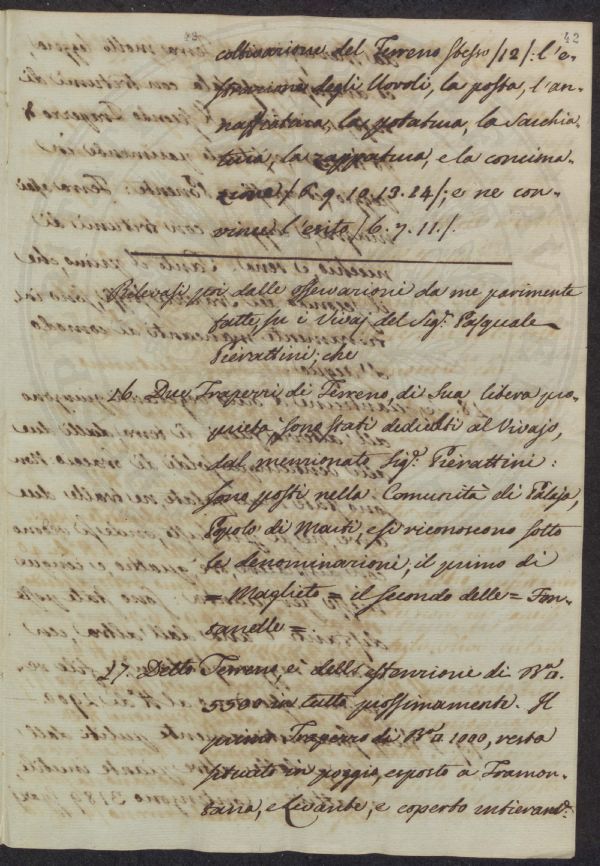 42
coltivazione del Terreno stesso /12/: l'e-
strazione degli Uovoli, la posta, l'an-
naffiatura, la potatura, la Sarchia-
tura, la zappatura, e la concima-
zione / 6. 9. 10. 13. 14/; e ne con-
vince l'esito / 6. 7. 11/.
Rilevasi poi dalle osservazioni da me parimente
fatte, su i Vivaj del Sigr. Pasquale
Pierattini, che
16. Due Trapezzi di Terreno, di Sua libera pro-
prietà, sono stati dedicati al Vivajo,
dal menzionato Sigr. Pierattini:
sono posti nella Comunità di Palaja,
Popolo di Marti, e si riconoscono sotto
le denominazioni, il primo di
= Maglieto = il secondo delle = Fon-
tanelle =
17. Detto Terreno, è dell'estenzione di Bra.
5500 in tutto prossimamente. Il
primo Trapezzo di Bra 1000, resta
situato in poggio, esposto a Tramon-
tana, e Levante, e coperto intieramte.